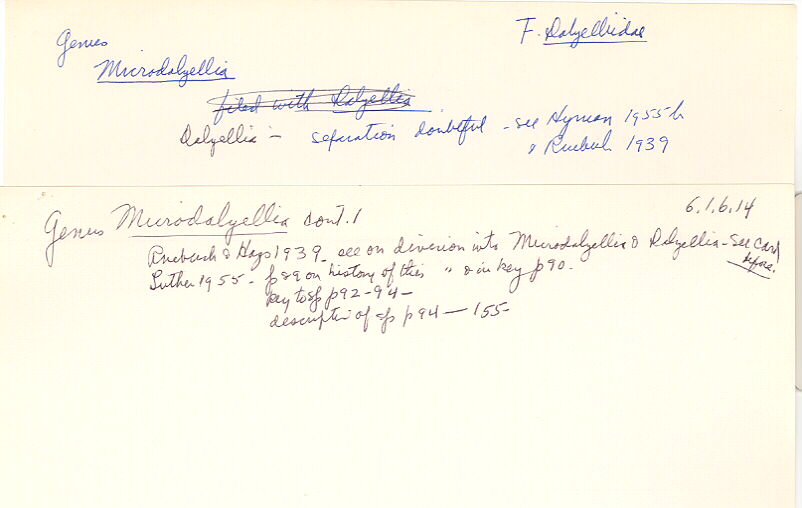 F. Dalyelliidae
Genus
Microdalyellia
filed with Dalyellia
Dalyellia - separation doubtful - see Hyman 1955 h
" Ruebush 1939
6.1.6.14
Genus Microdalyellia cont. 1
Ruebush & Hays 1939 - see on division into Microdalyellia & Dalyellia - see card before.
Luther 1955 - p 89 on history of this " & in key p 90.
key to sp p 92-94 -
description of sp p 94 - 155 -